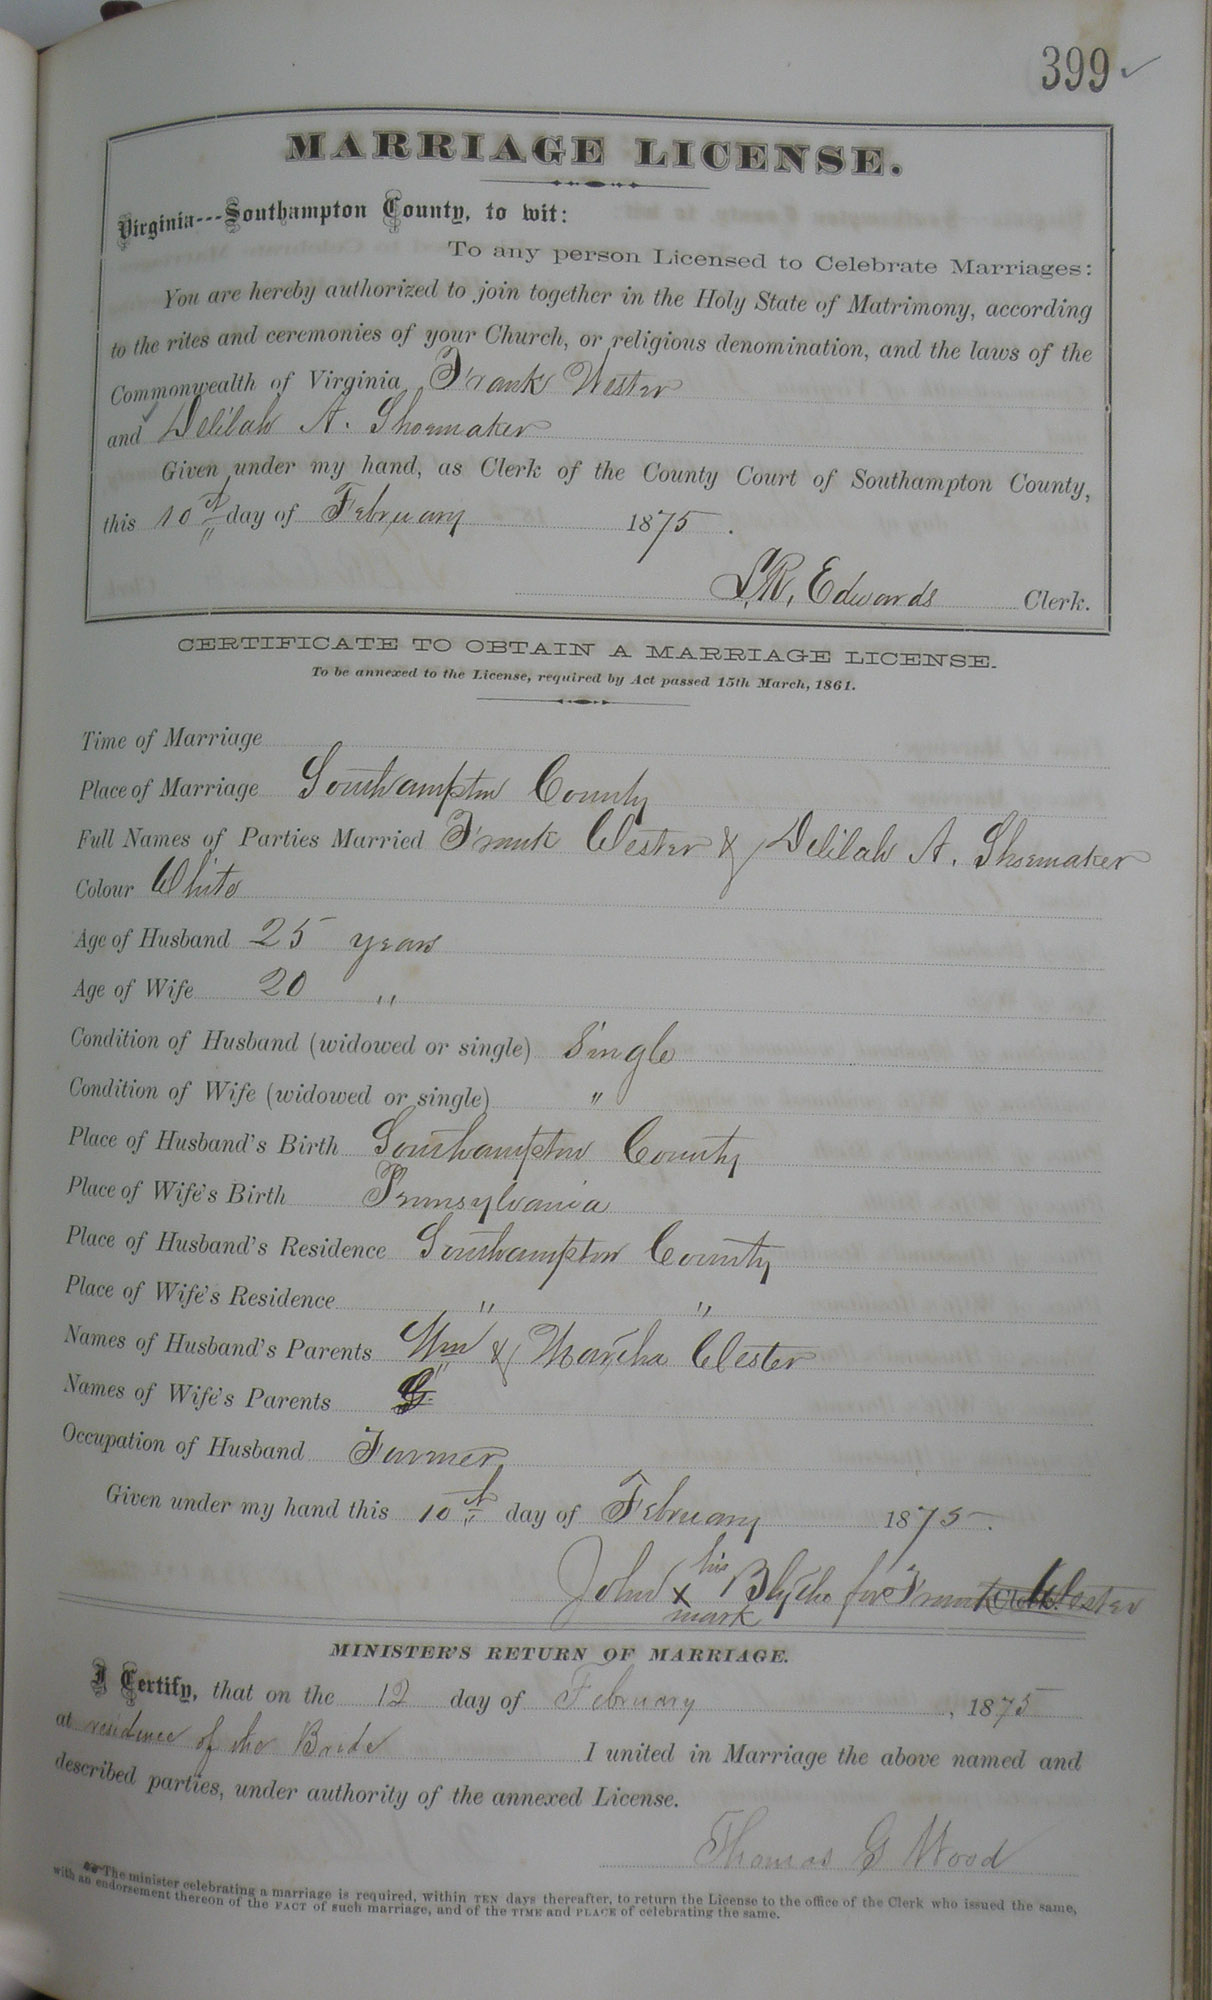 399 ✓
MARRIAGE LICENSE.
Virginia---Southampton County, to wit:
To any person Licensed to Celebrate Marriages:
You are hereby authorized to join together in the Holy State of Matrimony, according
to the rites and ceremonies of your Church, or religious denomination, and the laws of the
Commonwealth of Virginia Frank Wester
and Delilah A. Shoemaker
Given under my hand, as Clerk of the County Court of Southampton County,
this 10th day of February 1875.
L.R. Edwards Clerk.
CERTIFICATE TO OBTAIN A MARRIAGE LICENSE.
To be annexed to the License, required by Act passed 15th March, 1861.
Time of Marriage
Place of Marriage Southampton County
Full Names of Parties Married Frank Wester & Delilah A. Shoemaker
Colour White
Age of Husband 25 years
Age of Wife 20 "
Condition of Husband (widowed or single) Single
Condition of Wife (widowed or single) "
Place of Husband's Birth Southampton County
Place of Wife's Birth Pennsylvania
Place of Husband's Residence Southampton County
Place of Wife's Residence " "
Names of Husband's Parents Wm & Martha Wester
Names of Wife's Parents
Occupation of Husband Farmer
Given under my hand this 10th day of February 1875.
John his x mark Blythe for Frank Wester Clerk.
MINISTER'S RETURN OF MARRIAGE.
I Certify, that on the 12 day of February, 1875
at residence of the Bride I united in Marriage the above named and
described parties, under authority of the annexed License.
Thomas G Wood
The minister celebrating a marriage is required, within TEN days thereafter, to return the License to the office of the Clerk who issued the same,
with an endorsement thereon of the FACT of such marriage, and of the TIME and PLACE of celebrating the same.